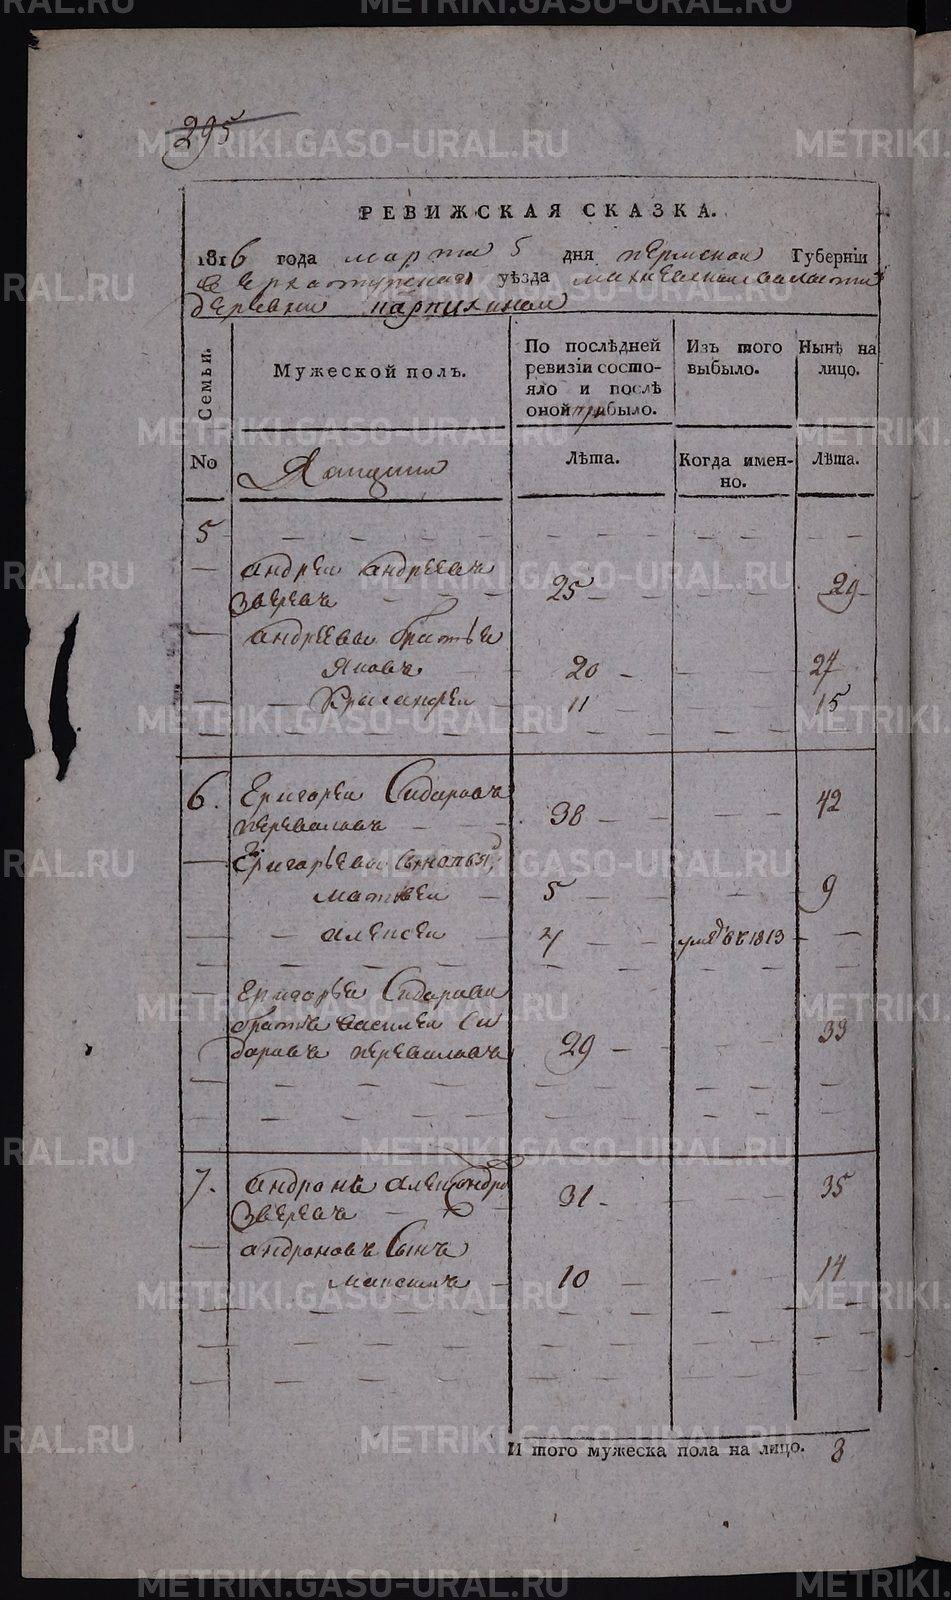 295
РЕВИЖСКАЯ СКАЗКА.
1816 года марта 5 дня пермской Губернiи
верхотурскаго уѣзда махневской валасти
деревни карпихиной
Семьи.
Мужеской полъ.
По послѣдней ревизiи состояло и послѣ оной прибыло.
Изъ того выбыло.
Нынѣ на лицо.
No
Ямщики
Лѣта.
Когда именно.
Лѣта.
5
андреи андреевъ
зверевъ 25 29
андреевы братья
Яковъ 20 24
Хрисанфеи 11 15
6. Григореи Сидаровъ
переваловъ 38 42
Григорьевы сыновья
матвеи 5 9
алексеи 4 умре въ 1813
Григорья Сидарова
братъ василеи Си
даровъ переваловъ 29 33
7. андронъ александро
зверевъ 31 35
андроновъ сынъ
максимъ 10 14
И того мужеска пола на лицо. 8
METRIKI.GASO-URAL.RU